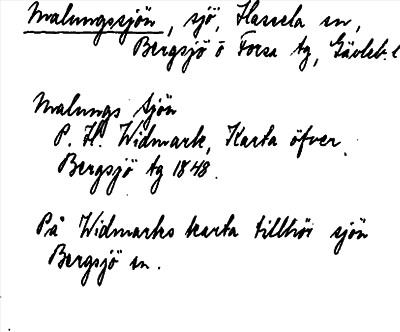 Malungssjön, sjö, Hassela sn,
Bergsjö o Forsa tg, Gävleb. l
Malungs Sjön
P. H. Widmark, Karta öfver
Bergsjö tg 1848.
På Widmarks karta tillhör sjön
Bergsjö sn.